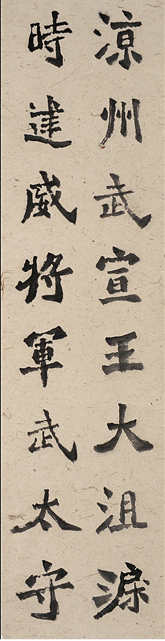 涼州武宣王大沮渠
時建威將軍武太守